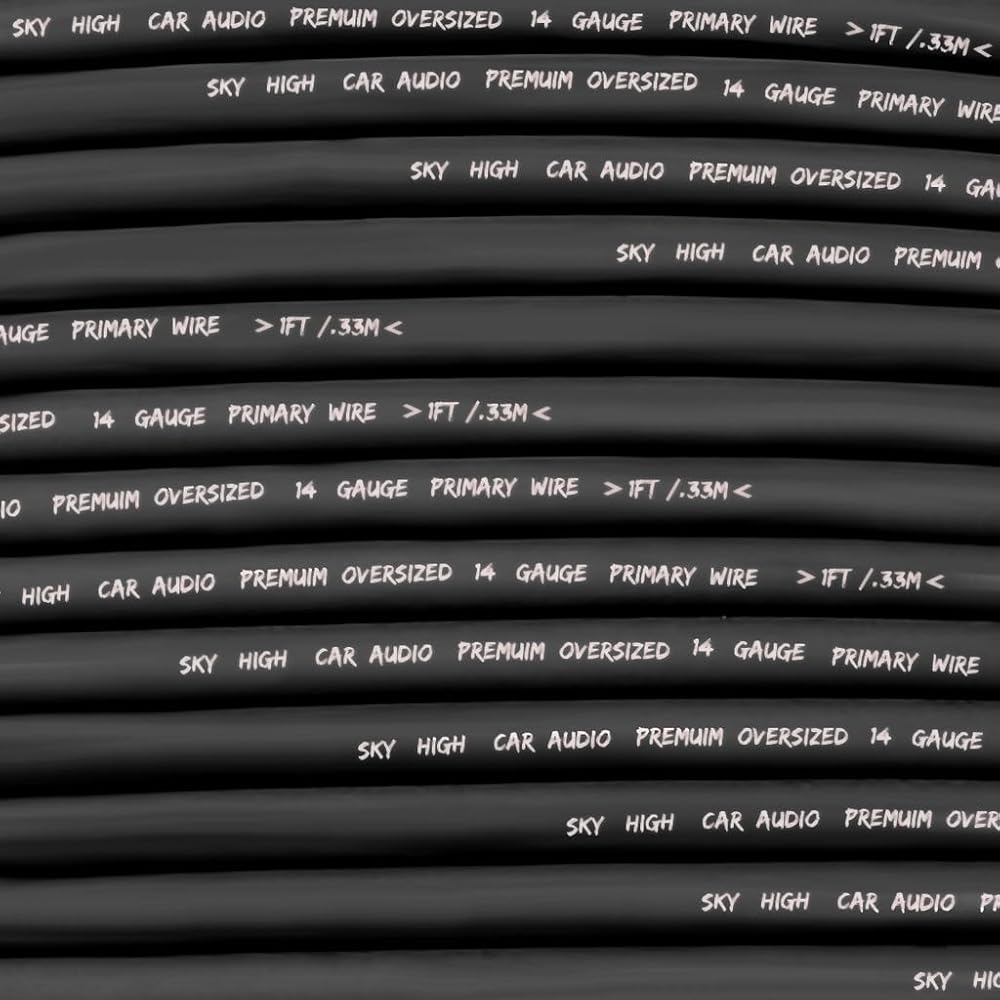 SKY HIGH CAR AUDIO PREMUIM OVERSIZED 14 GAUGE PRIMARY WIRE >1FT /.33M<
SKY HIGH CAR AUDIO PREMUIM OVERSIZED 14 GAUGE PRIMARY WIRE
SKY HIGH CAR AUDIO PREMUIM OVERSIZED 14 GAU
SKY HIGH CAR AUDIO PREMUIM
AUGE PRIMARY WIRE >1FT /.33M<
SIZED 14 GAUGE PRIMARY WIRE >1FT /.33M<
IO PREMUIM OVERSIZED 14 GAUGE PRIMARY WIRE >1FT /.33M<
HIGH CAR AUDIO PREMUIM OVERSIZED 14 GAUGE PRIMARY WIRE >1FT /.33M<
SKY HIGH CAR AUDIO PREMUIM OVERSIZED 14 GAUGE PRIMARY WIRE
SKY HIGH CAR AUDIO PREMUIM OVERSIZED 14 GAUGE
SKY HIGH CAR AUDIO PREMUIM OVERS
SKY HIGH CAR AUDIO PR
SKY HIG